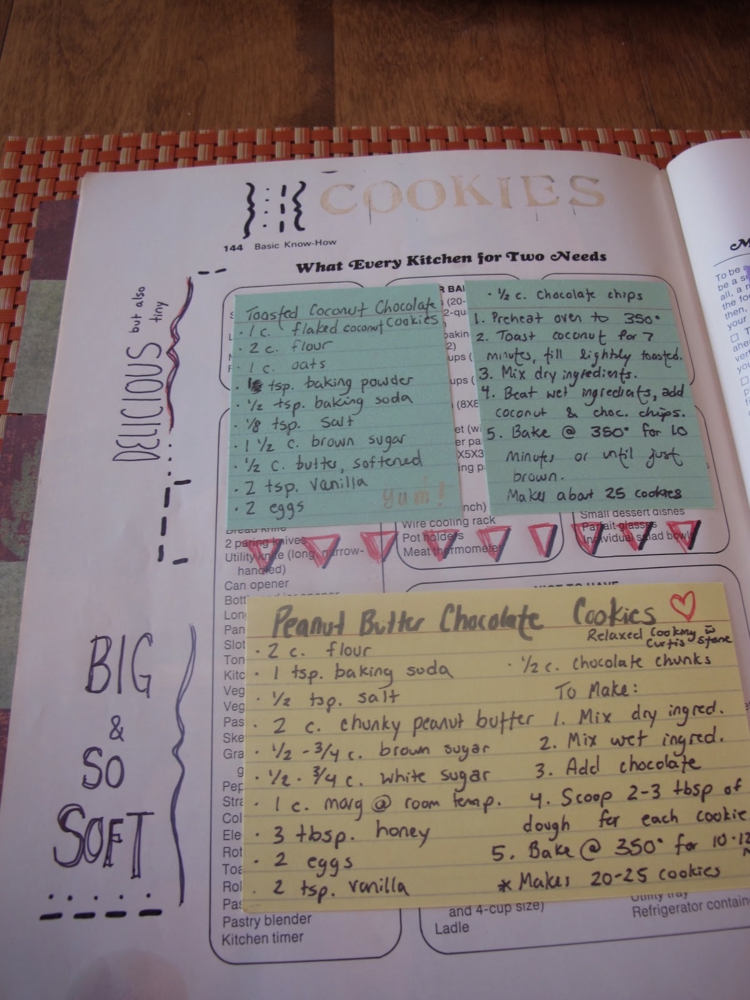 COOKIES
144 Basic Know-How
What Every Kitchen for Two Needs
DELICIOUS but also tiny
Toasted Coconut Chocolate
Cookies
• 1 c. flaked coconut
• 2 c. flour
• 1 c. oats
• tsp. baking powder
• 1/2 tsp. baking soda
• 1/8 tsp. salt
• 1 1/2 c. brown sugar
• 1/2 c. butter, softened
• 2 tsp. vanilla
• 2 eggs
yum!
• 1/2 c. chocolate chips
1. Preheat oven to 350°
2. Toast coconut for 7
minutes, till lightly toasted.
3. Mix dry ingredients.
4. Beat wet ingredients, add
coconut & choc. chips.
5. Bake @ 350° for 10
minutes or until just
brown.
Makes about 25 cookies
2 paring knives
Utility knife (long, narrow-
handled)
Can opener
Wire cooling rack
Pot holders
Meat thermometer
Small dessert dishes
Parfait glasses
Individual salad bowls
BIG
&
SO
SOFT
Peanut Butter Chocolate Cookies ♡
Relaxed Cooking
Curtis Stone
• 2 c. flour
• 1 tsp. baking soda
• 1/2 tsp. salt
• 2 c. chunky peanut butter
• 1/2 - 3/4 c. brown sugar
• 1/2 - 3/4 c. white sugar
• 1 c. marg @ room temp.
• 3 tbsp. honey
• 2 eggs
• 2 tsp. vanilla
• 1/2 c. chocolate chunks
To Make:
1. Mix dry ingred.
2. Mix wet ingred.
3. Add chocolate
4. Scoop 2-3 tbsp of
dough for each cookie
5. Bake @ 350° for 10-12
* Makes 20-25 cookies
Pastry blender
Kitchen timer
and 4-cup size)
Ladle
Utility tray
Refrigerator contain